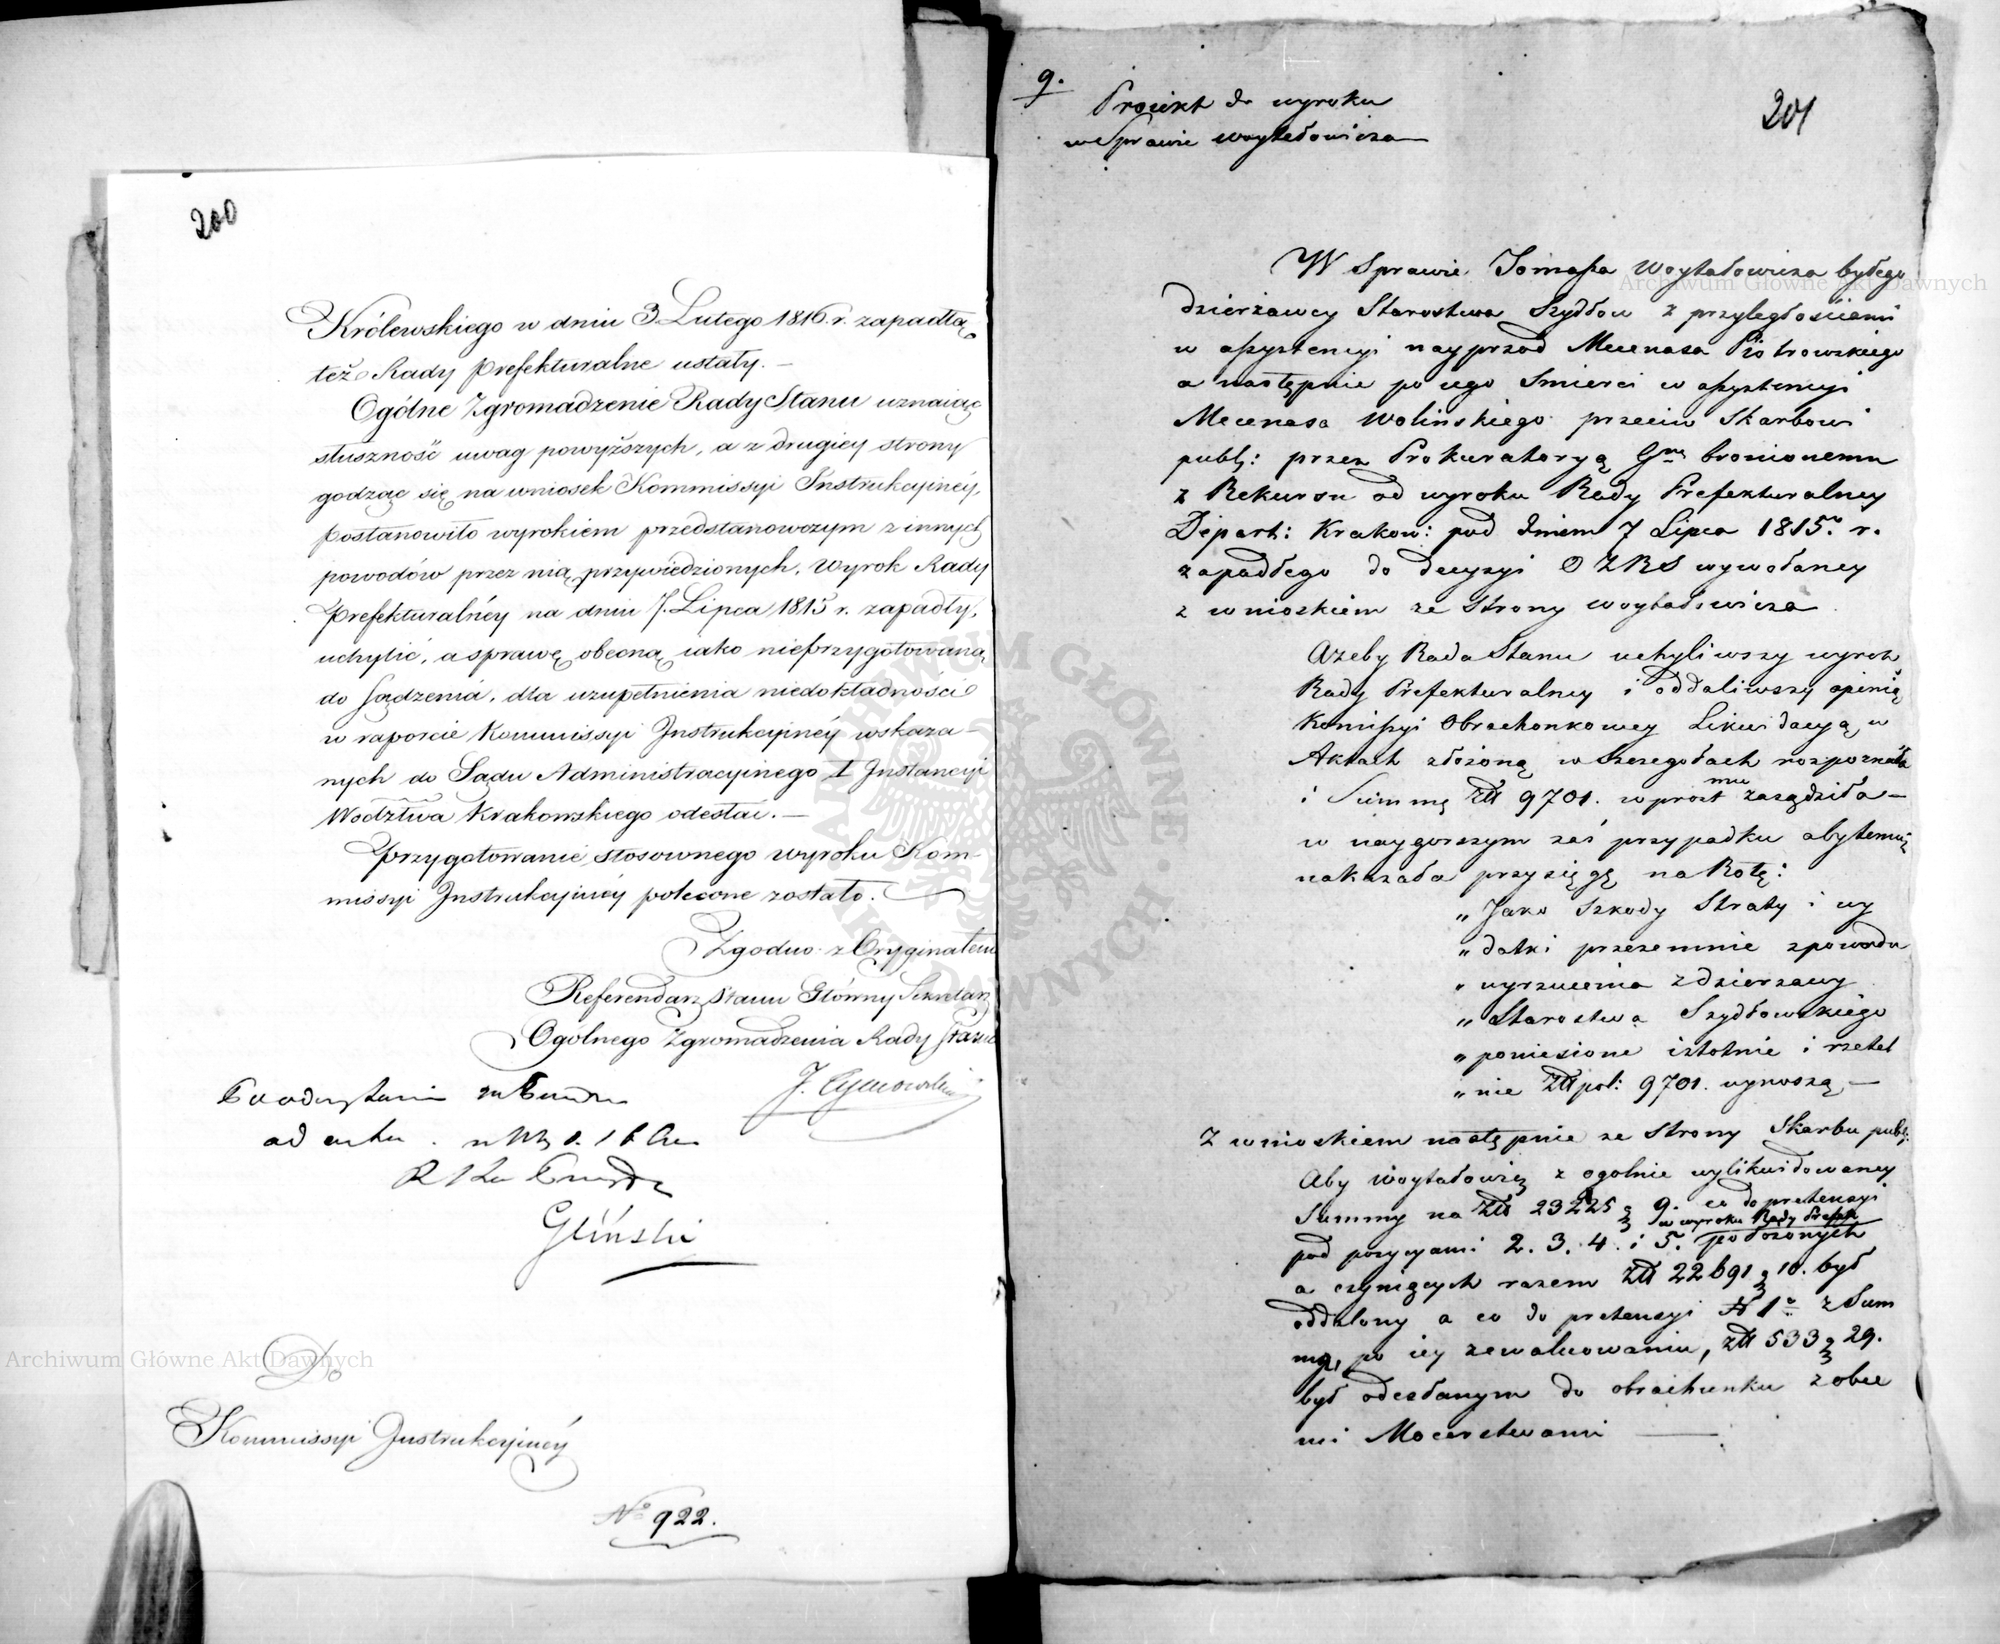 200
Królewskiego w dniu 3. Lutego 1816. r. zapadłą,
też Rady Prefekturalne ustały. —
Ogólne Zgromadzenie Rady Stanu uznaiąc
słuszność uwag powyższych, a z drugiey strony
godząc się na wniosek Kommissyi Instrukcyinéy,
postanowiło wyrokiem przedstanowczym z innych
powodów przez nią przywiedzionych, wyrok Rady
Prefekturalnéy na dniu 7. Lipca 1815 r. zapadły,
uchylić, a sprawę obecną iako nieprzygotowaną
do sądzenia, dla uzupełnienia niedokładności
w raporcie Kommissyi Instrukcyinéy wskaza-
nych do Sądu Administracyinego I Instancyi
Wodztwa Krakowskiego odesłać. —
Przygotowanie stosownego wyroku Kom-
missyi Instrukcyinéy polecone zostało.
Zgodno z Oryginałem
Referendarz Stanu Główny Sekretarz
Ogólnego Zgromadzenia Rady Stanu
Gliński
Do
Kommissyi Instrukcyinéy
No 922.
9.
201
Proiekt do wyroku
w Sprawie Woytałowicza
W Sprawie Tomasza Woytałowicza byłego
dzierżawcy Starostwa Szydłow z przyległościami
w assystencyi nayprzod Mecenasa Piotrowskiego
a następnie po iego Smierci w assystencyi
Mecenasa Wolinskiego przeciw Skarbowi
publ: przez Prokuratoryą Gną bronionemu
z Rekursu od wyroku Rady Prefekturalney
Depart: Krakow: pod dniem 7 Lipca 1815. r.
zapadłego do decyzyi O Z R S wywołaney
z wnioskiem ze strony Woytałowicza
Ażeby Rada Stanu uchyliwszy wyrok
Rady Prefekturalney i oddaliwszy opinią
Komissyi Obrachonkowey Likwidacyą w
Aktach złożoną w szczegołach rozpoznała
i Summę Złł 9701. wprost mu zasądziła —
w naygorszym zaś przypadku aby temuż
nakazała przysięgę na Rotę:
„ Jako Szkody Straty i wy
„ datki przezemnie z powodu
„ wyrzucenia z dzierzawy
„ Starostwa Szydłowskiego
„ poniesione istotnie i rzetel
„ nie Złł pol: 9701. wynoszą —
Z wnioskiem następnie ze strony Skarbu publ:
Aby Woytałowicz z ogolnie wylikwidowaney
Summy na Złł 23225 g 9. co do pretensyi
w wyroku Rady Prefek
pod pozycyami 2. 3. 4. i 5. położonych
a czyniących razem Złł 22691 g 10. był
oddalony a co do pretensyi N 1o z Sum
mą, po iey zewaluowaniu, Złł 533 g 29.
był odesłanym do obrachunku z obce
mi Mocarstwami —
Archiwum Główne Akt Dawnych
Archiwum Główne Akt Dawnych
ARCHIWUM GŁÓWNE AKT DAWNYCH